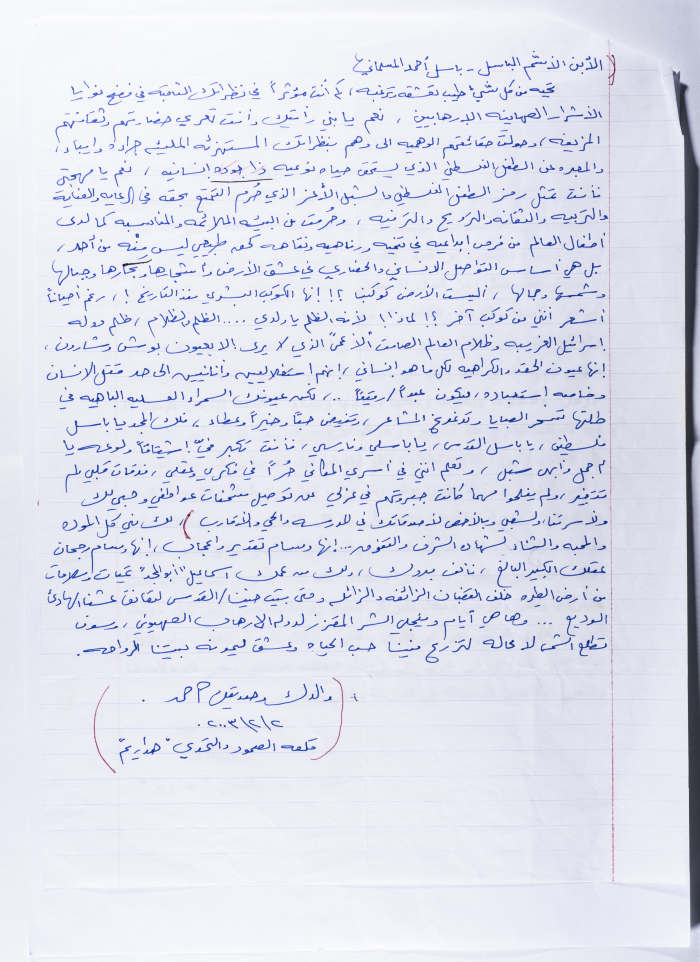 الابن الأشم الباسل - باسل أحمد المسلماني
تحيه من كل شيء طيب تعشقه وترغبه، كم أنت مؤثراً في نظراتك الثاقبه في فضح نوايا
الأشرار الصهاينه الإرهابيين، نعم يا بني رأيتك وأنت تعري حضارتهم وثقافتهم
المزيفه، وحولت حقائقهم الوهميه الى وهم بنظراتك المستهزئه المليئه جرأه وإيباء،
والمعبره عن الطفل الفلسطيني الذي يستحق حياه نوعيه ذا جوده إنسانيه، نعم يا مهجتي
فأنت تمثل رمز الطفل الفلسطيني والشبل الأعز الذي حُرم التمتع بحقه في الرعايه والعنايه
والتربيه والثقافه والترويح والترفيه، وحُرمت من البيئه الملائمه والمناسبه كما لدى
أطفال العالم من فرص إبداعيه في تنميه ورفاهيه ونقاهه كحق طبيعي ليس مِنَّه من أحد،
بل هي أساس التواصل الانساني والحضاري في عشق الأرض وأشجارها وبحارها وجبالها
وشمسها وجمالها، أليست الأرض كوكبنا ؟! إنها الكوكب البشري منذ التاريخ !، رغم أحياناً
أشعر أنني من كوكب آخر ؟! لماذا!! لأنه الظلم يا ولدي .... الظلم والظلام، ظلم دوله
إسرائيل الغريبه وظلام العالم الصامت الأعمى الذي لا يرى الا بعيون بوش وشارون،
إنها عيون الحقد والكراهيه لكل ما هو إنساني، إنهم إستغلاليين وأنانيين الى حد قتل الإنسان
وخاصه استعباده، ليكون عبداً / رقيقاً .. لكن عيونك السمراء العسليه الباهيه في
طلتها تسحر الصبايا وتدغدغ المشاعر، وتفيض حباً وخيراً وعطاء، فلك المجد يا باسل
فلسطين، يا باسل القدس، يا باسلي وفارسي، فأنت تكبر فيَّ إشتياقاً ولوعه يا
أجمل وأبهى شبل، وتعلم أنني في أسري المكاني حُراً في فكري وعقلي، ودقات قلبي لم
تتغير، ولم يفلحوا مهما كانت جبروتهم في عزلي عن توصيل شحنات عواطفي وحبي لك
ولأسرتنا، ولشعبي وبالأخص لأصدقائك في المدرسه والحي والأقارب )، لك مني كل الموده
والمحبه والثناء لشهاده الشرف والتفوق ... إنها وسام تقدير وإعجاب، إنها وسام رجحان
عقلك الكبير البالغ، فألف مبروك، ولك من عمك اسماعيل "أبو المجد" تحيات وسلامات
من أرض الطهره خلف القضبان الزائفه والزائله وحتى بيت حنينا / القدس ليعانق عشنا الهادئ
الوديع ... وها هي أيام وينجلي الشر المقزز لدوله الإرهاب الصهيوني، وسوف
تطلع الشمس لا محاله لتزرع فينا حب الحياه وعشق ليمونه لبيتنا المرواحه.
والدك وصديقك أحمد .
٢٠٠٣/٢/٢ .
قلعه الصمود والتحدي "هداريم"